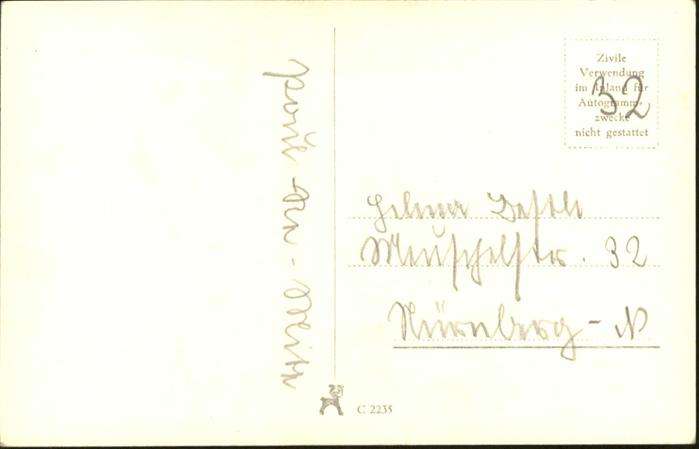 Zivile
Verwendung
im Inland für
Autogramm-
zwecke
nicht gestattet
32
Helma
Meuschelstr. 32
Nürnberg - N
C 2235